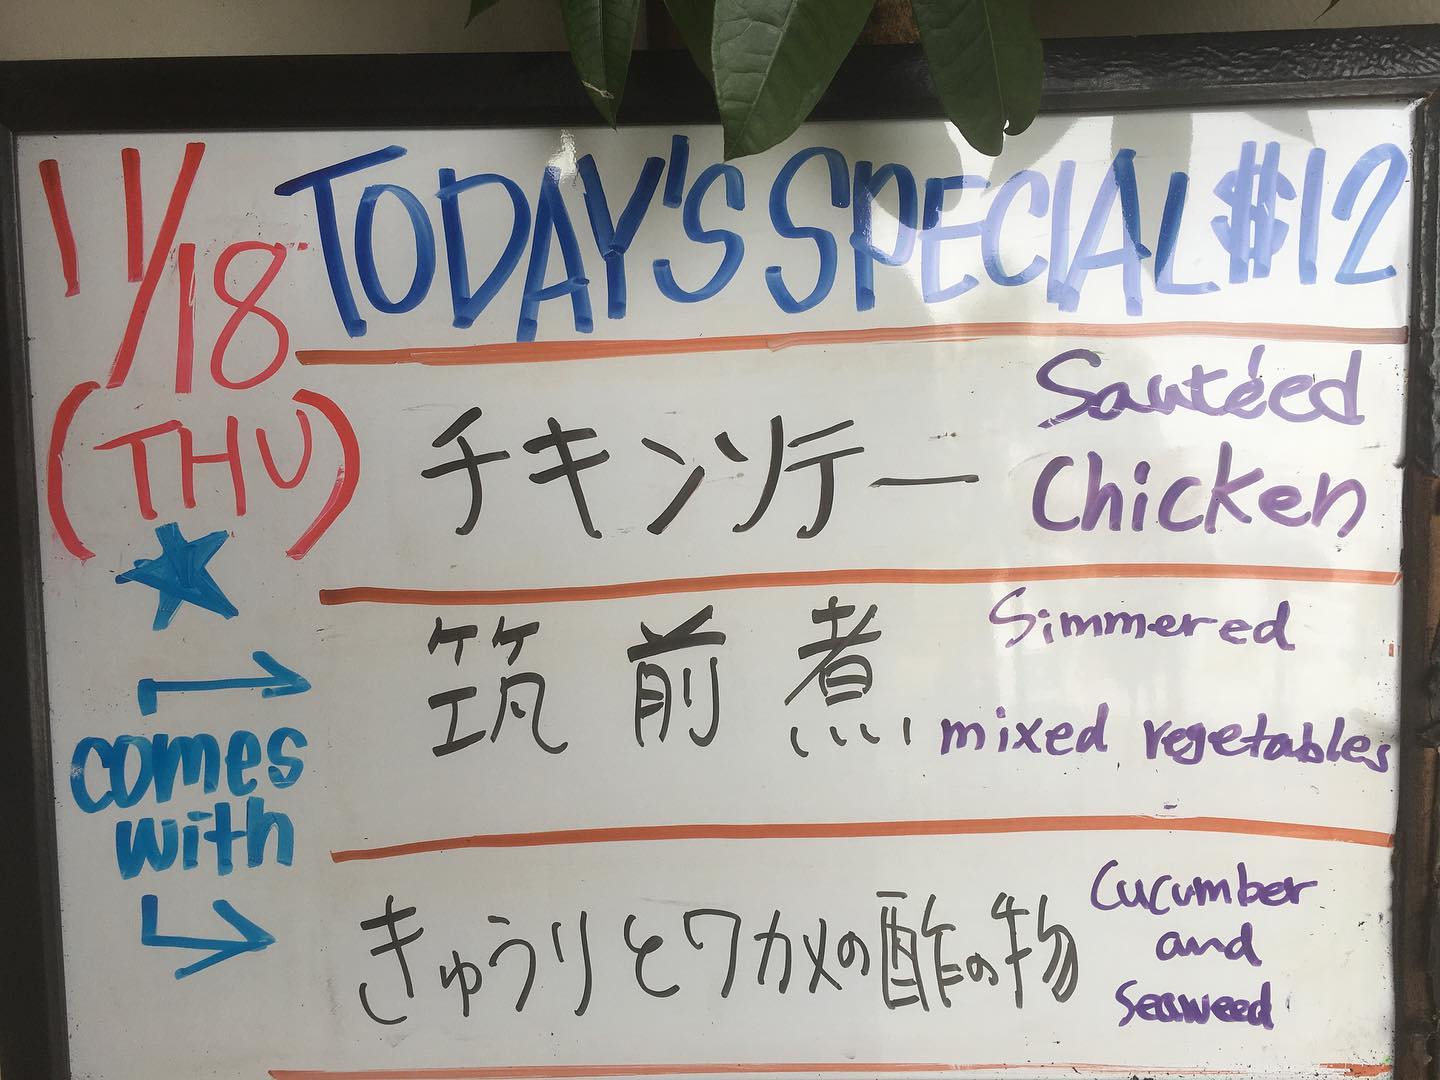 11/18
(THU)
TODAY'S SPECIAL $12
チキンソテー
Sautéed
Chicken
comes
with
筑前煮
Simmered
mixed vegetables
きゅうりとワカメの酢の物
Cucumber
and
Seaweed